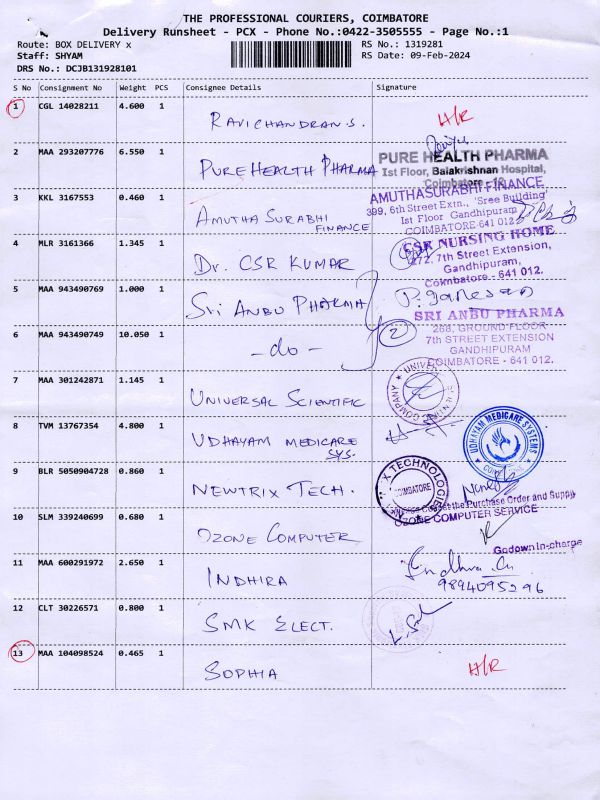 THE PROFESSIONAL COURIERS, COIMBATORE
Delivery Runsheet - PCX - Phone No.:0422-3505555 - Page No.:1
Route: BOX DELIVERY x
RS No.: 1319281
Staff: SHYAM
RS Date: 09-Feb-2024
DRS No.: DCJB131928101
S No Consignment No Weight PCS Consignee Details Signature
1 CGL 14028211 4.600 1 RAVICHANDRAN S. H/R
2 MAA 293207776 6.550 1 PURE HEALTH PHARMA
PURE HEALTH PHARMA
Ist Floor, Balakrishnan Hospital,
Coimbatore
3 KKL 3167553 0.460 1 AMUTHA SURABHI
FINANCE
AMUTHASURABHI FINANCE
399, 6th Street Extn., 'Sree Building'
Ist Floor Gandhipuram
COIMBATORE-641 012
4 MLR 3161366 1.345 1 Dr. CSR KUMAR
CSR NURSING HOME
272, 7th Street Extension,
Gandhipuram,
Coimbatore - 641 012.
5 MAA 943490769 1.000 1 Sri ANBU PHARMA
P. Ganesan
SRI ANBU PHARMA
268, GROUND FLOOR
7th STREET EXTENSION
GANDHIPURAM
COIMBATORE - 641 012.
6 MAA 943490749 10.050 1 -do- 2
7 MAA 301242871 1.145 1 UNIVERSAL SCIENTIFIC
8 TVM 13767354 4.800 1 UDHAYAM MEDICARE
SYS.
UDHAYAM MEDICARE SYSTEMS
9 BLR 5050904728 0.860 1 NEWTRIX TECH.
X TECHNOLOGIE
COIMBATORE
the Purchase Order and Supply
OZONE COMPUTER SERVICE
10 SLM 339240699 0.680 1 OZONE COMPUTER
Godown In-charge
11 MAA 600291972 2.650 1 INDHIRA
9894095296
12 CLT 30226571 0.800 1 SMK ELECT.
13 MAA 104098524 0.465 1 SOPHIA H/R